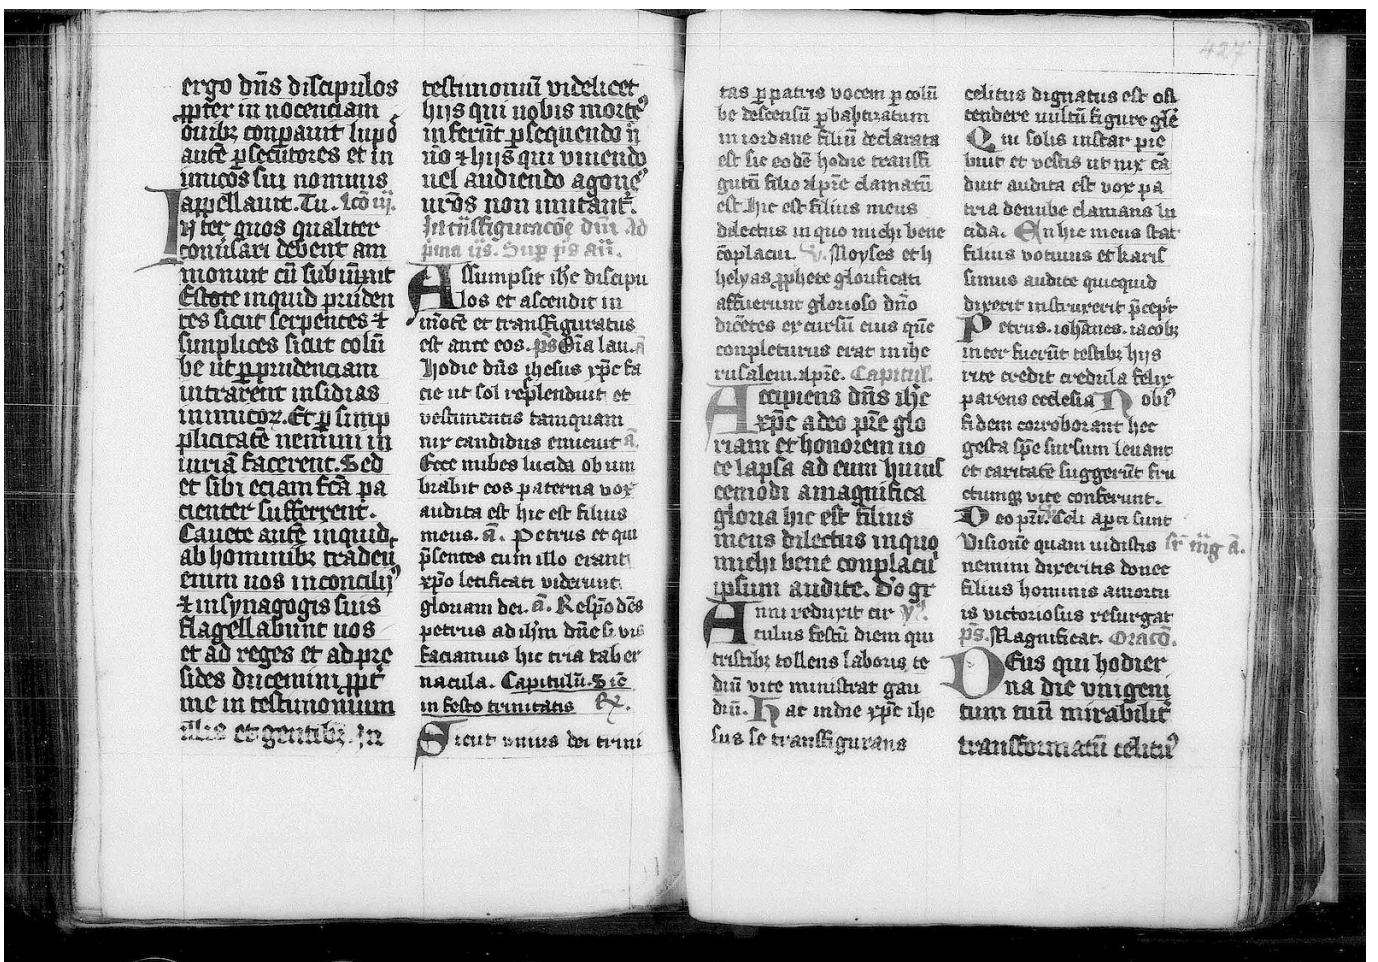 ergo dn̄s discipulos
ꝓpter in nocenciam
ouibꝫ conparauit lupō
autē ꝑsecutores et in
imicos sui nominis
appellauit. Tu. lcō iij.
In ter quos qualiter
conuersari debent am
monuit cū subiūxit
Estote inquid pruden
tes sicut serpentes ⁊
simplices sicut colū
be ut ꝑ prudenciam
intrarent insidias
inimicoꝝ. Et ꝑ simp
plicitatē nemini in
iuriā facerent. Sed
et sibi eciam fcā pa
cienter sufferrent.
Cauete autē inquid
ab hominibꝫ tradēt
enim uos in concilijs
⁊ in synagogis suis
flagellabunt uos
et ad reges et ad pre
sides ducemini ꝓpt̄
me in testimonium
illis et gentibꝫ. In
testimoniū videlicet
hijs qui nobis mortē
inferūt ꝑsequendo ṅ
nō ⁊ hijs qui viuendo
uel audiendo agonē
ur̄os non imitant᷑.
In trāsfiguracōe dn̄i Ad
prima vs̄. Suꝑ ps̄ an̄.
Assumpsit ihc̄ discipu
los et ascendit in
mōtē et transfiguratus
est ante eos. ps̄ Oīa lau. ā
Hodie dn̄s ihesus xp̄c fa
cie ut sol resplenduit et
vestimentis tamquam
nix candidus emicuit ā.
Ecce nubes lucida obum
brabit eos paterna vox
audita est hic est filius
meus. ā. Petrus et qui
p̄sentes cum illo erant
xp̄o letificati viderunt
gloriam dei. ā. Respō dēs
petrus ad ihm̄ dn̄e si vis
faciamus hic tria taber
nacula. Capitulū. Sic̄
in festo trinitatis ℞.
Sicut vnius dei trini
427
tas ꝑ patris vocem ꝑ colū
be descensū ꝑ babtizatum
in iordane filiū declarata
est sic eodē hodie transfi
gutū filio alpr̄ē clamatū
est hic est filius meus
dilectus in quo michi bene
cōplacui. V̄. Moyses et h
helyas ꝓphete glorificati
affuerunt glorioso dn̄o
dicētes excursū eius quē
conpleturus erat in ihe
rusalem. alpr̄e. Capituł.
Accipiens dn̄s ihc̄
xp̄c a deo pr̄e glo
riam et honorem uo
ce lapsa ad eum huius
cemodi a magnifica
gloria hic est filius
meus dilectus in quo
michi bene conplacui
ipsum audite. Do gr̄
Anni reduxit cir y̅.
culus festū diem qui
tristibꝫ tollens laboris te
diū vite ministrat gau
diū. Hac in die xp̄c ihe
sus se transfigurans
celitus dignatus est ost
tendere uultū figure glē
Qui solis instar pre
buit et vestis ut nix cā
duit audita est vox pa
tria de nube clamans lu
cida. En hic meus stat
filius votiuus et karis
simus audite quicquid
dixerit instruxerit p̄cept̄
Petrus. iohānes. iacobꝫ
inter fuerūt testibꝫ hijs
rite credit credula felix
parens ecclesia Nobis
fidem corroborant hec
gesta spē sursum leuant
et caritatē suggerūt fru
ctumqꝫ vite conferunt.
Deo pr̄i. Celi aꝑti sunt
Visionē quam uidistis sr̄ m̄g ā.
nemini dixeritis donec
filius hominis a mortu
is victoriosus resurgat
ps̄. Magnificat. Oracō.
Deus qui hodier
na die vnigeni
tum tuū mirabilit̄
transformatū celitus